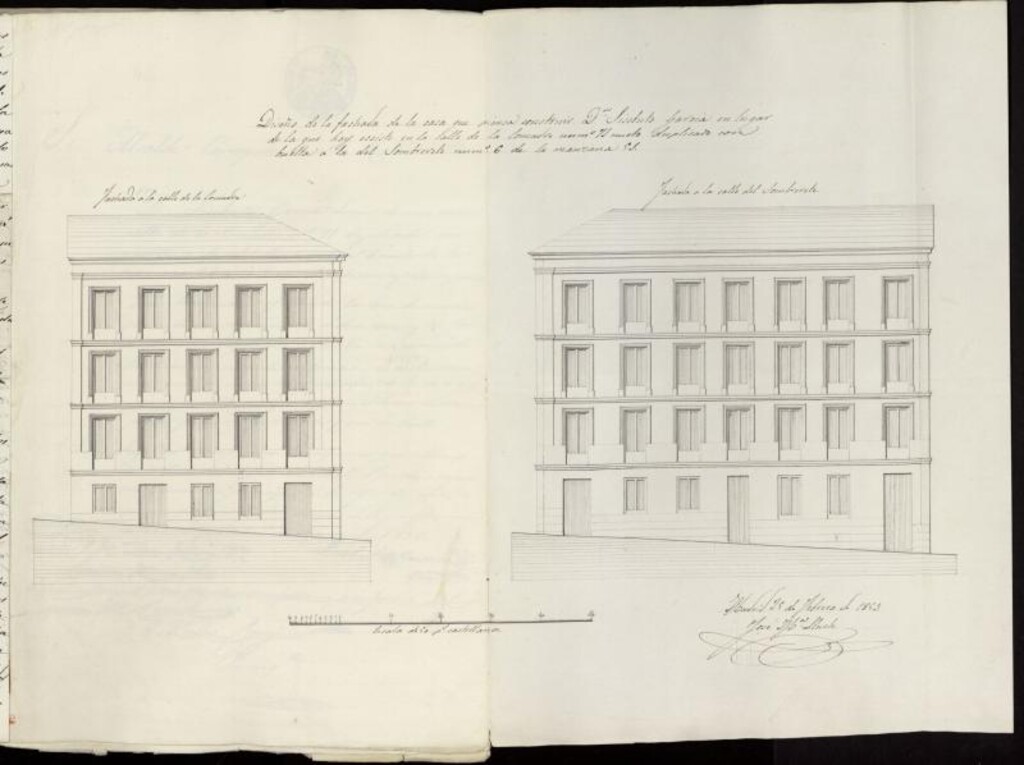 Diseño de la fachada de la casa que piensa construir Dn. García en lugar
de la que hoy ecsiste en la calle de la Comadre num.º nuebo duplicado con
buelta a la del Sombrerete num.º 6 de la manzana
Fachada a la calle de la Comadre
Fachada a la calle del Sombrerete
Escala de ps. castellanos
Madrid de Febrero de 1853
José Mª